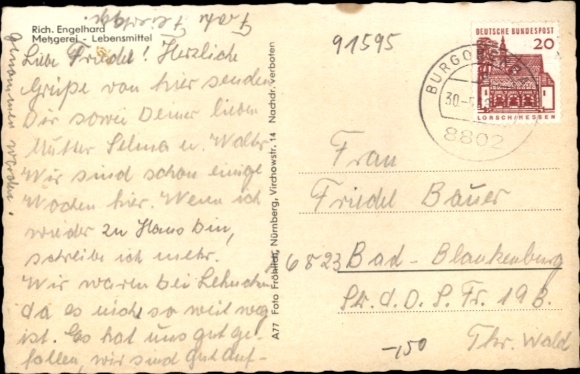 Rich. Engelhard
Metzgerei - Lebensmittel
Liebe Friedel! Herzliche
Grüße von hier senden
Dir sowie Deiner lieben
Mutter Selma u. Walter
Wir sind schon einige
Wochen hier. Wenn ich
wieder zu Haus bin,
schreibe ich mehr.
Wir waren bei
da es nich so weit weg
ist. Es hat uns gut ge-
fallen, wir sind gut auf-
genommen worden!
A77 Foto Fröhlich, Nürnberg, Virchowstr. 14 Nachdr. verboten
91595
DEUTSCHE BUNDESPOST
20
LORSCH/HESSEN
30.
8802
Frau
Friedel Bauer
6823 Bad-Blankenburg
Str. d. O. S. Fr. 19B.
Thr. Wald
-,50